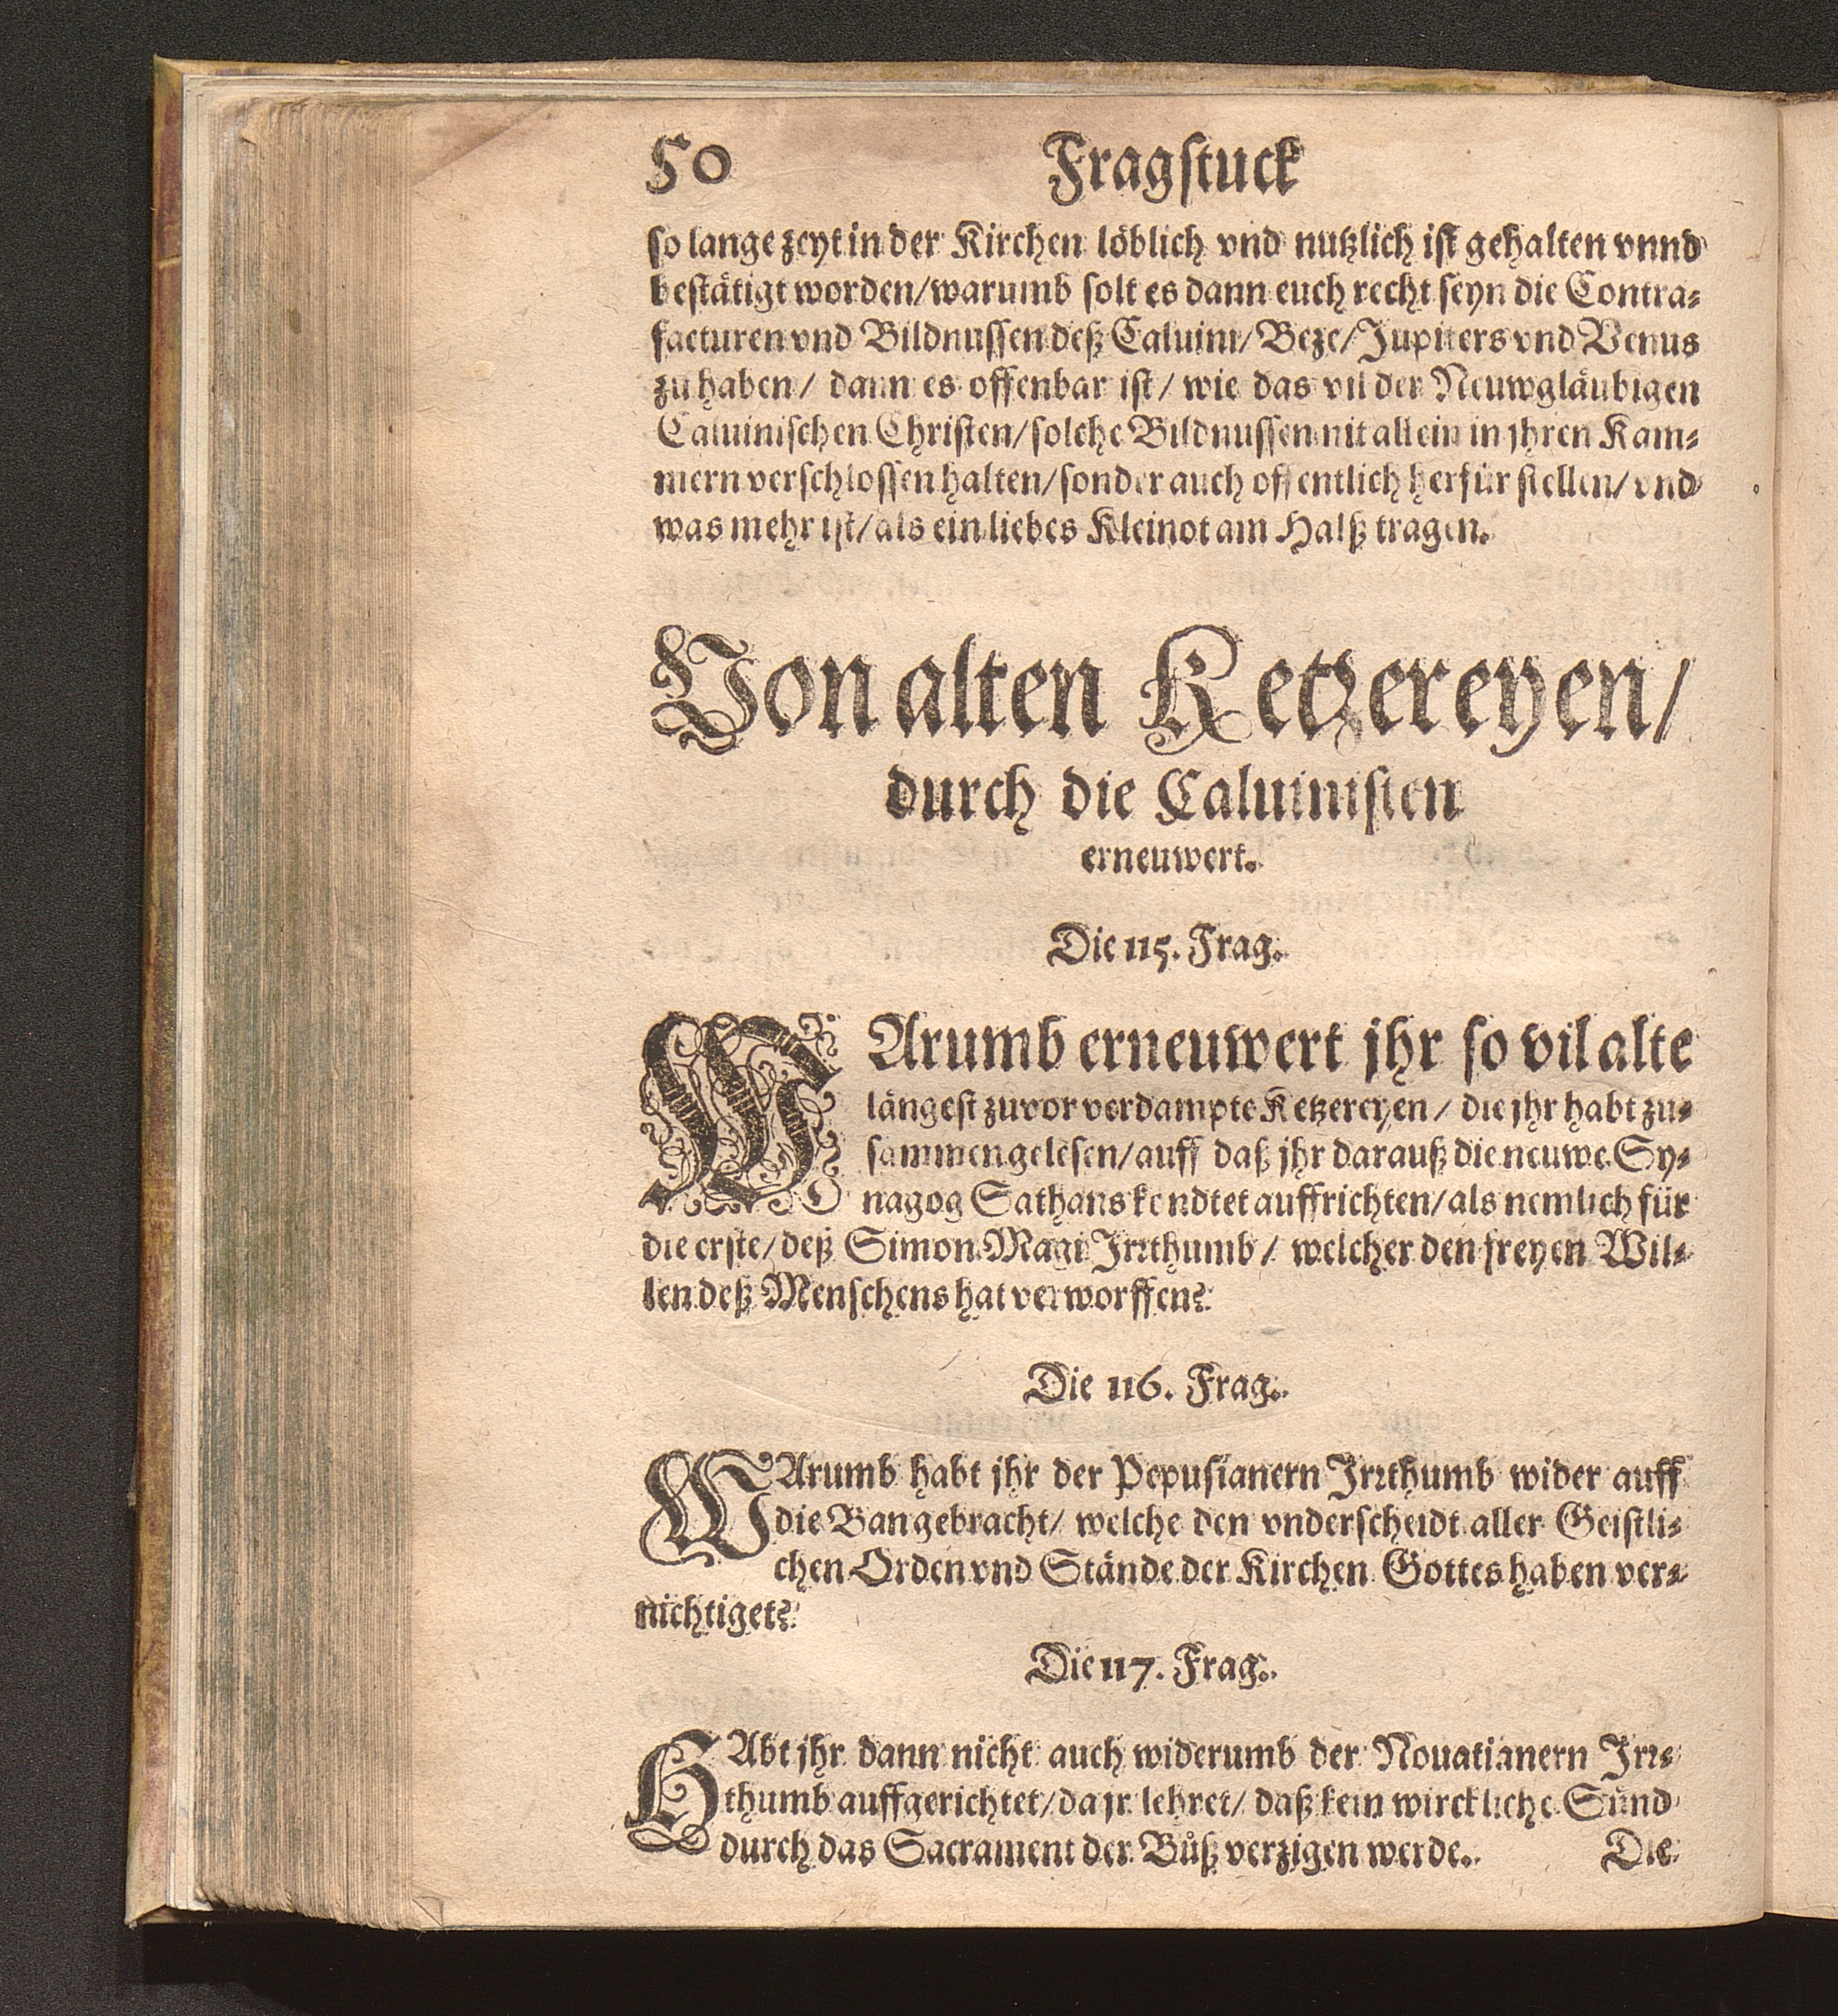 50 Fragstuck
so lange zeyt in der Kirchen löblich vnd nutzlich ist gehalten vnnd
bestätigt worden/warumb solt es dann euch recht seyn die Contra-
facturen vnd Bildnussen deß Caluini/Beze/Jupiters vnd Venus
zu haben/ dann es offenbar ist/ wie das vil der Neuwgläubigen
Caluinischen Christen/solche Bildnussen nit allein in jhren Kam-
mern verschlossen halten/sonder auch offentlich herfür stellen/ vnd
was mehr ist/als ein liebes Kleinot am Halß tragen.
Von alten Ketzereyen/
durch die Caluinisten
erneuwert.
Die 115. Frag.
WArumb erneuwert jhr so vil alte
längest zuvor verdampte Ketzereyen/ die jhr habt zu-
sammen gelesen/auff daß jhr darauß die neuwe Sy-
nagog Sathans kondtet auffrichten/als nemlich für
die erste/deß Simon Magi Irrthumb/ welcher den freyen Wil-
len deß Menschens hat verworffen?
Die 116. Frag.
WArumb habt jhr der Pepusianern Irrthumb wider auff
die Ban gebracht/ welche den vnderscheidt aller Geistli-
chen Orden vnd Stände der Kirchen Gottes haben ver-
nichtiget?
Die 117. Frag.
HAbt jhr dann nicht auch widerumb der Nouatianern Irr-
thumb auffgerichtet/da jr lehret/ daß kein wirckliche Sünd
durch das Sacrament der Bůß verzigen werde. Die